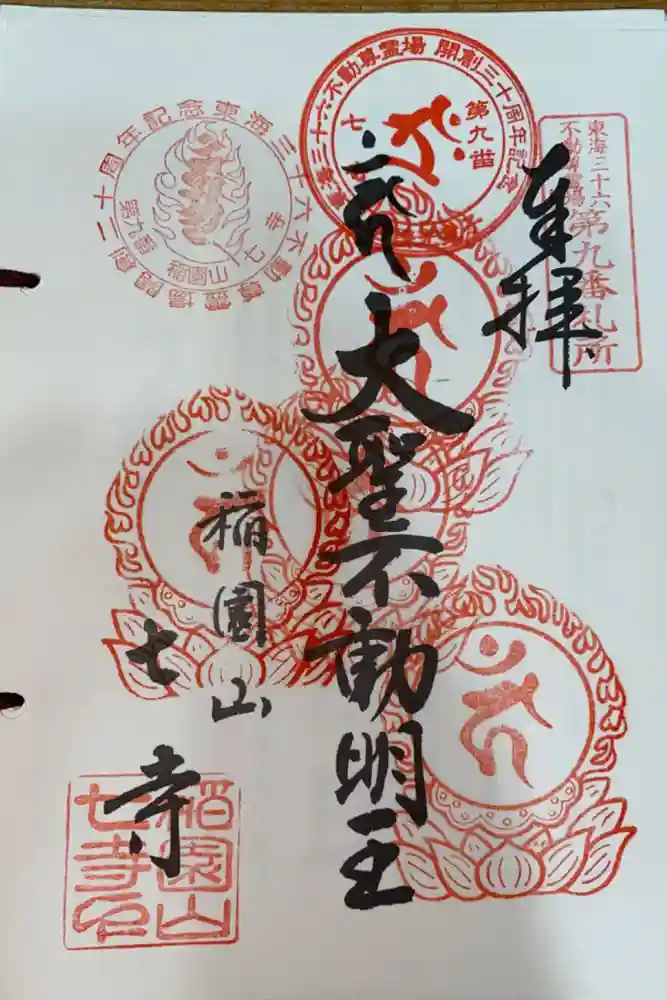 奉拝
東海三十六
不動尊霊場
第九番札所
東海三十六不動尊霊場 開創三十周年記念
第九番
七
大聖不動明王
東海三十六不動尊霊場開創二十周年記念
第九番
七寺
稲園山
七寺
稲園山
七寺印